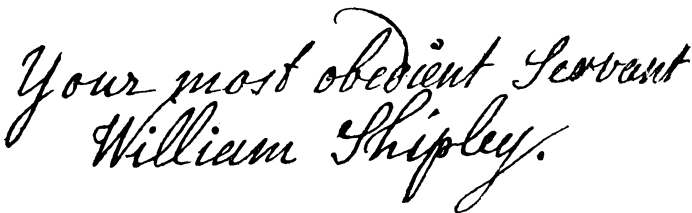 Your most obedient Servant
William Shipley.